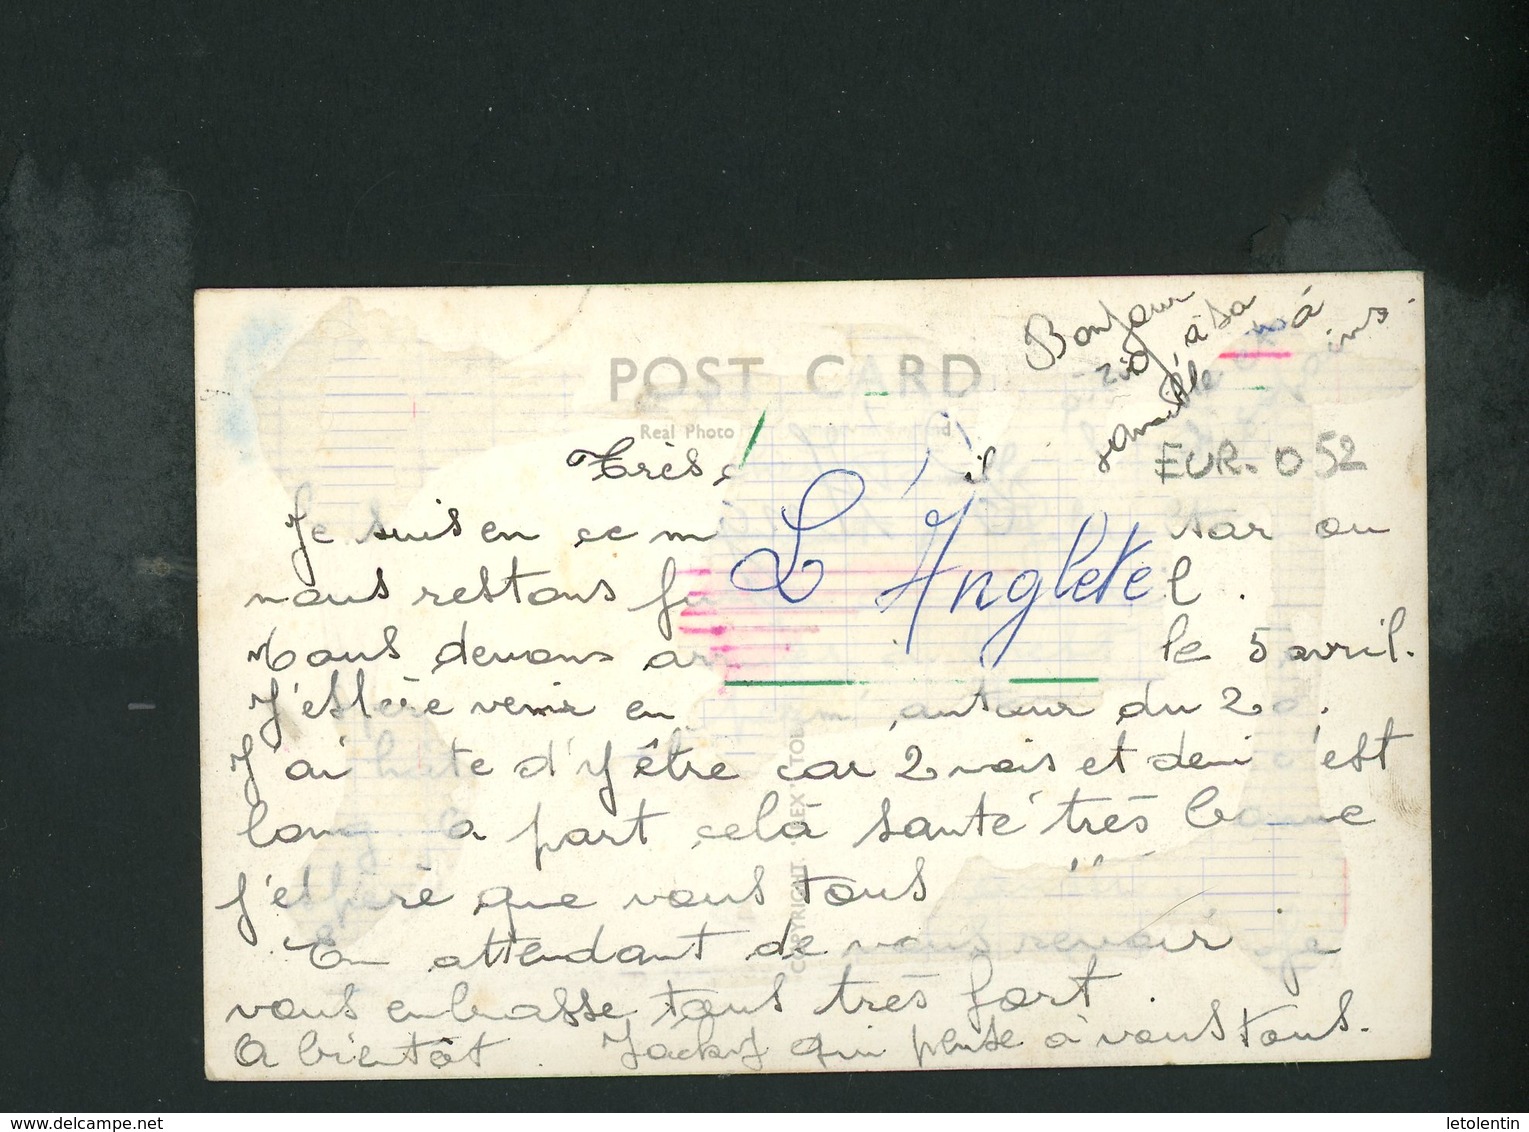 POST CARD
Real Photo
Bonjour
à sa à
famille ainsi
EUR. 0 52
Très
L'Anglete
Je suis en ce m tar ou
nous restons l.
Nous devons arr le 5 avril.
J'espère venir en autour du 20.
J'ai hâte d'y être car 2 mois et demi c'est
long a part celà santé très bonne
j'espère que vous tous
En attendant de vous revoir je
vous embrasse tous très fort.
A bientôt. Jacky qui pense à vous tous.
COPYRIGHT.
www.delcampe.net
letolentin